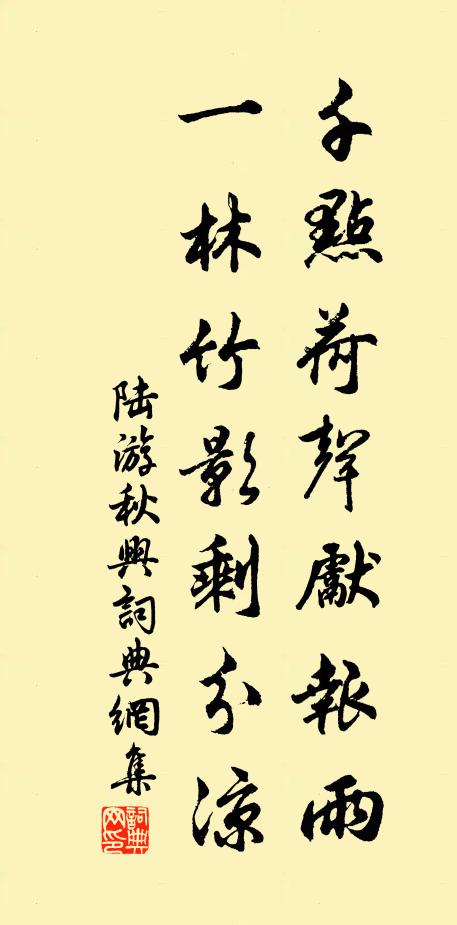 千點荷聲獻報雨
一林竹影剩分涼
陸游秋興詞典網集
詞典網印